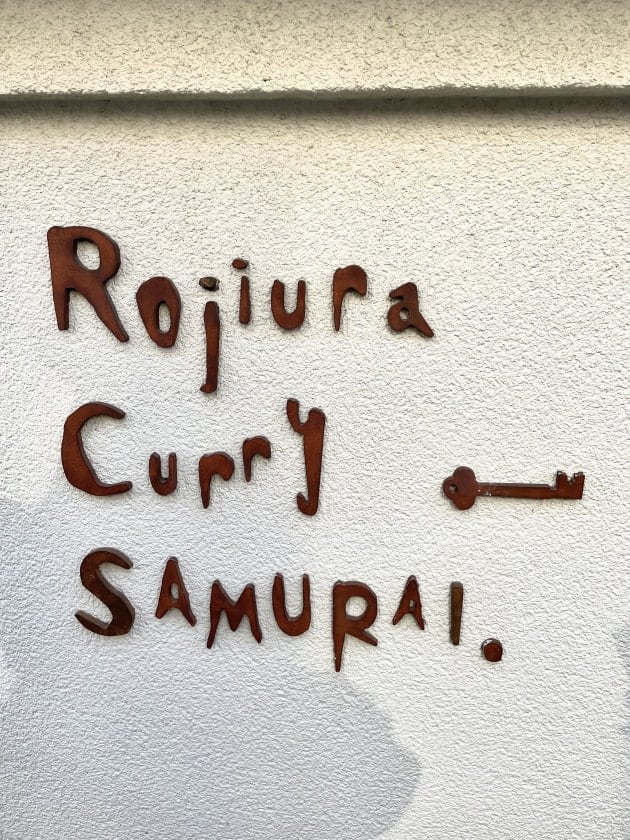 Rojiura
Curry
SAMURAI.